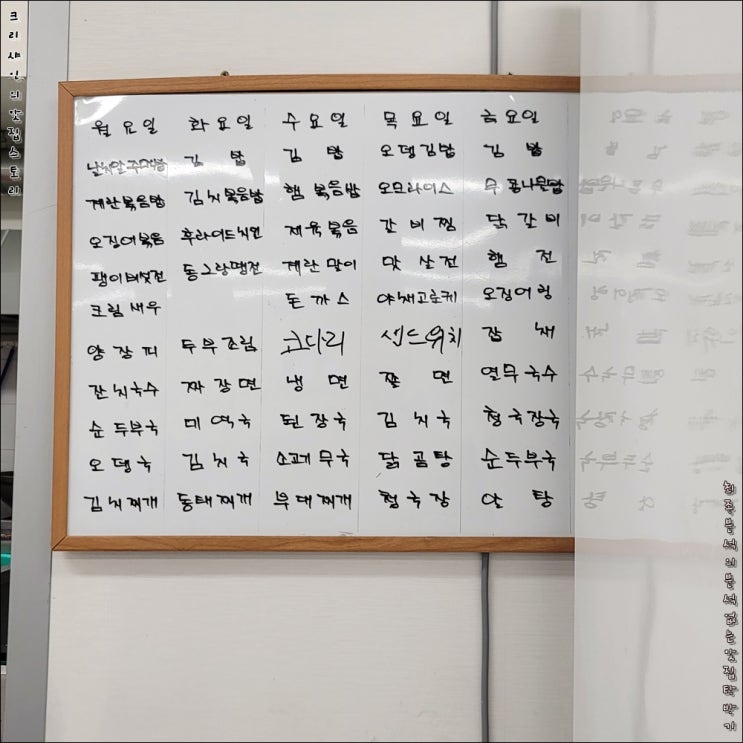 크리샤인의맛집스토리
월요일 화요일 수요일 목요일 금요일
날치알주먹밥 김밥 김밥 오뎅김밥 김밥
계란볶음밥 김치볶음밥 햄볶음밥 오므라이스 콩나물밥
오징어볶음 후라이드치킨 제육볶음 갈비찜 닭갈비
팽이버섯전 동그랑땡전 계란말이 맛살전 햄전
크림새우 돈까스 야채고로케 오징어링
양장피 두부조림 코다리 샌드위치 잡채
잔치국수 짜장면 냉면 쫄면 열무국수
순두부국 미역국 된장국 김치국 청국장국
오뎅국 김치국 소고기무국 닭곰탕 순두부국
김치찌개 동태찌개 부대찌개 청국장 알탕